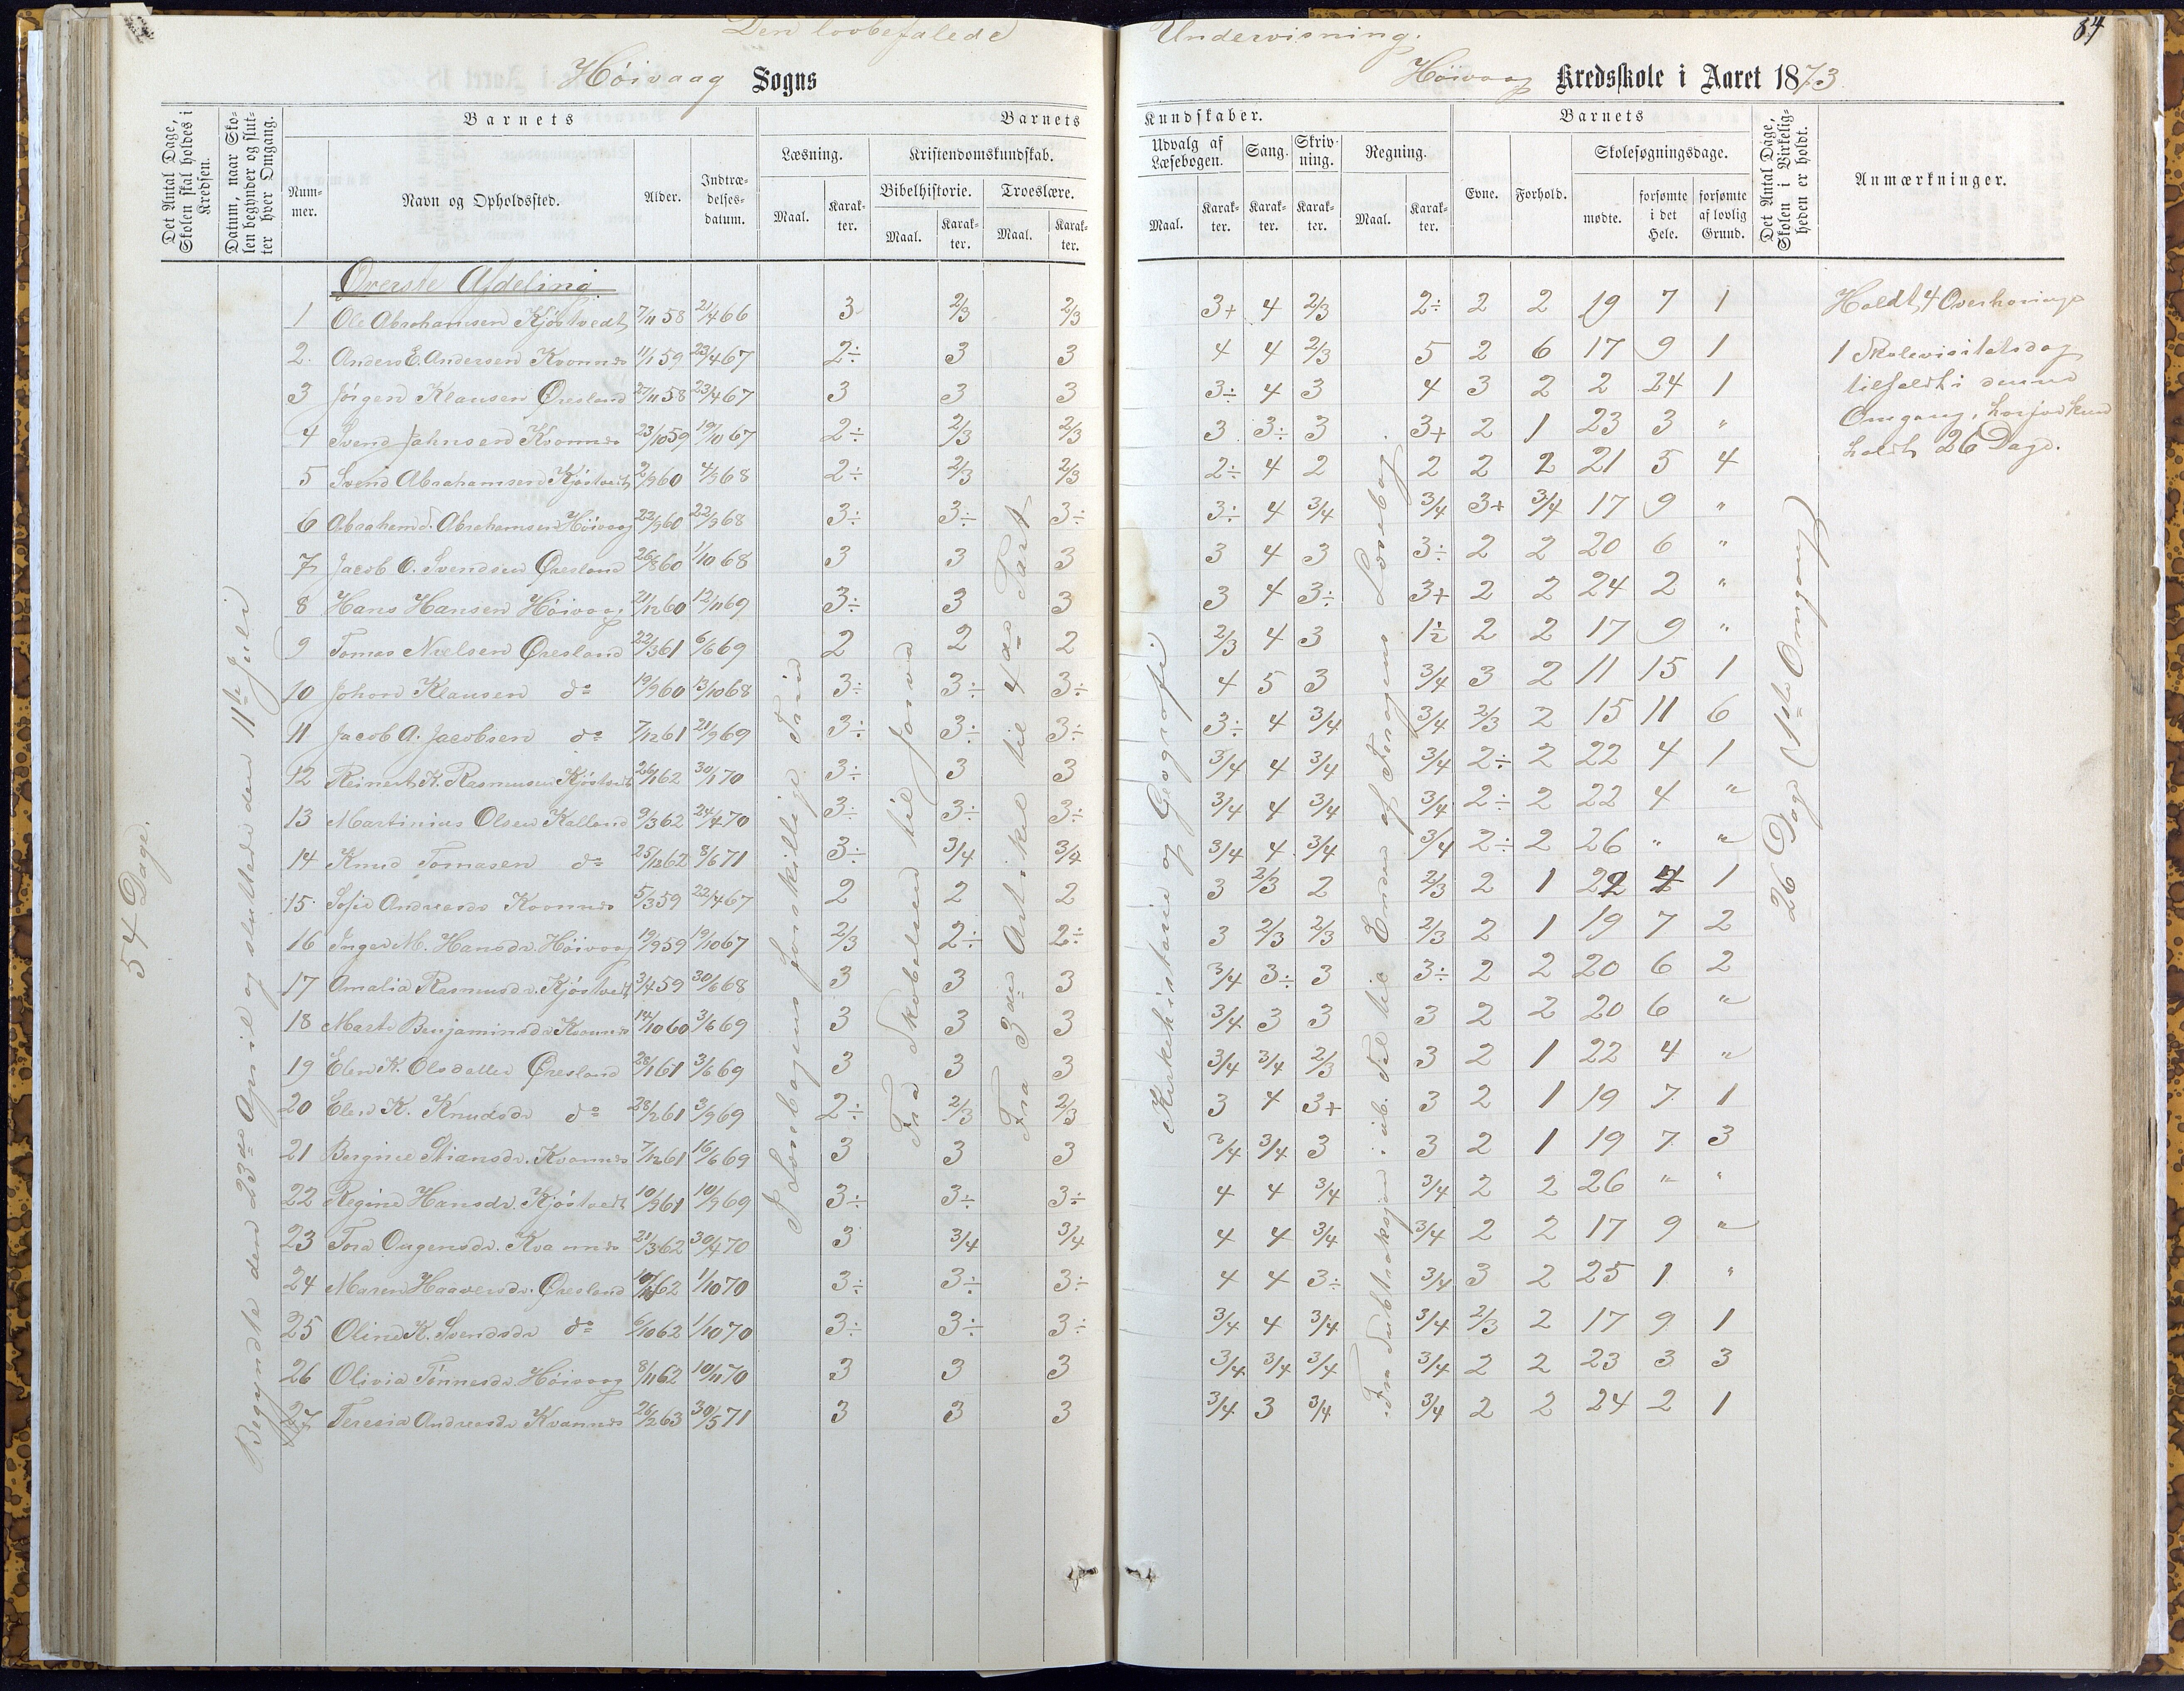 Den lovbefalede Undervisning.
84
Höivaag Sogns Höivaag Kredsskole i Aaret 1873
Det Antal Dage, Skolen skal holdes i Kredsen.
Datum, naar Skolen begynder og slutter hver Omgang.
Barnets
Nummer.
Navn og Opholdssted.
Alder.
Indtrædelsesdatum.
Barnets Kundskaber.
Læsning.
Maal.
Karakter.
Kristendomskundskab.
Bibelhistorie.
Maal.
Karakter.
Troeslære.
Maal.
Karakter.
Udvalg af Læsebogen.
Maal.
Karakter.
Sang.
Karakter.
Skrivning.
Karakter.
Regning.
Maal.
Karakter.
Barnets
Evne.
Forhold.
Skolesøgningsdage.
mødte.
forsømte i det Hele.
forsømte af lovlig Grund.
Det Antal Dage, Skolen i Virkeligheden er holdt.
Anmærkninger.
54 Dage.
Begyndte den 23de April og sluttede den 11te Juli
I Læsebogens forskillige Trin
Fra Skabelsen til
Fra 3die Artikel til 4de Part
Kirkehistorie og Geografi
Fra Subtraksjon i ub. Tal til Enden af Læsebog
26 Dage (1ste Omgang)
Øverste Afdeling
1 Ole Abrahamsen Kjöstvedt 7/11 58 21/4 66 3 2/3 2/3 3+ 4 2/3 2÷ 2 2 19 7 1
2. Anders E. Andersen Kvannes 11/1 59 23/4 67 2÷ 3 3 4 4 2/3 5 2 6 17 9 1
3 Jörgen Klausen Öresland 27/11 58 23/4 67 3 3 3 3÷ 4 3 4 3 2 2 24 1
4 Svend Jahnsen Kvannes 23/10 59 19/10 67 2÷ 2/3 2/3 3 3÷ 3 3+ 2 1 23 3 "
5 Svend Abrahamsen Kjöstvedt 2/9 60 4/9 68 2÷ 2/3 2/3 2÷ 4 2 2 2 2 21 5 4
6 Abraham Abrahamsen Höivaag 22/9 60 22/9 68 3÷ 3÷ 3÷ 3÷ 4 3/4 3/4 3+ 3/4 17 9 "
7 Jacob O. Svendsen Öresland 26/8 60 1/10 68 3 3 3 3 4 3 3÷ 2 2 20 6 "
8 Hans Hansen Höivaag 21/12 60 12/11 69 3÷ 3 3 3 4 3÷ 3+ 2 2 24 2 "
9 Tomas Nielsen Öresland 22/3 61 6/6 69 2 2 2 2/3 4 3 1½ 2 2 17 9 "
10 Johan Klausen do 19/9 60 13/10 68 3÷ 3÷ 3÷ 4 5 3 3/4 3 2 11 15 1
11 Jacob A. Jacobsen do 7/12 61 21/9 69 3÷ 3÷ 3÷ 3÷ 4 3/4 3/4 2/3 2 15 11 6
12 Reinert K. Rasmussen Kjöstvedt 26/1 62 30/1 70 3÷ 3 3 3/4 4 3/4 3/4 2÷ 2 22 4 1
13 Martinius Olsen Kalland 9/3 62 24/4 70 3÷ 3÷ 3÷ 3/4 4 3/4 3/4 2÷ 2 22 4 "
14 Knud Tomasen do 25/12 62 8/6 71 3÷ 3/4 3/4 3/4 4 3/4 3/4 2÷ 2 26 " "
15 Sofie Andreasdr Kvannes 5/3 59 22/4 67 2 2 2 3 2/3 2 2/3 2 1 22 4 1
16 Inger M. Hansdr. Höivaag 19/9 59 19/10 67 2/3 2÷ 2÷ 3 2/3 2/3 2/3 2 1 19 7 2
17 Amalia Rasmusdr. Kjöstvedt 3/4 59 30/6 68 3 3 3 3/4 3÷ 3 3÷ 2 2 20 6 2
18 Marte Benjaminsdr Kvannes 14/10 60 3/6 69 3 3 3 3/4 3 3 3 2 2 20 6 "
19 Elen K. Olsdatter Öresland 28/1 61 3/6 69 3 3 3 3/4 3/4 2/3 3 2 1 22 4 "
20 Elen K. Knudsdr do 28/2 61 3/9 69 2÷ 2/3 2/3 3 4 3+ 3 2 1 19 7 1
21 Bergine Stiansdr. Kvannes 7/12 61 16/6 69 3 3 3 3/4 3/4 3 3 2 1 19 7 3
22 Regine Hansdr. Kjöstvedt 10/9 61 10/9 69 3÷ 3÷ 3÷ 4 4 3/4 3/4 2 2 26 " "
23 Tora Ougensdr. Kvannes 21/3 62 30/4 70 3 3/4 3/4 4 4 3/4 3/4 2 2 17 9 "
24 Maren Haaversdr. Öresland 62 1/10 70 3÷ 3÷ 3÷ 4 4 3÷ 3/4 3 2 25 1 "
25 Oline K. Svendsdr do 6/10 62 1/10 70 3÷ 3÷ 3÷ 3/4 4 3/4 3/4 2/3 2 17 9 1
26 Olivia Tönnesdr. Höivaag 8/11 62 10/11 70 3 3 3 3/4 3/4 3/4 3/4 2 2 23 3 3
27 Teresia Andreasdr Kvannes 26/2 63 30/5 71 3 3 3 3/4 3 3/4 3/4 2 2 24 2 1
Holdt 4 Overhørings
1 Skolevisitatsdag
tilfeldt i denne
Omgang, hvorfor kun
holdt 26 Dage.